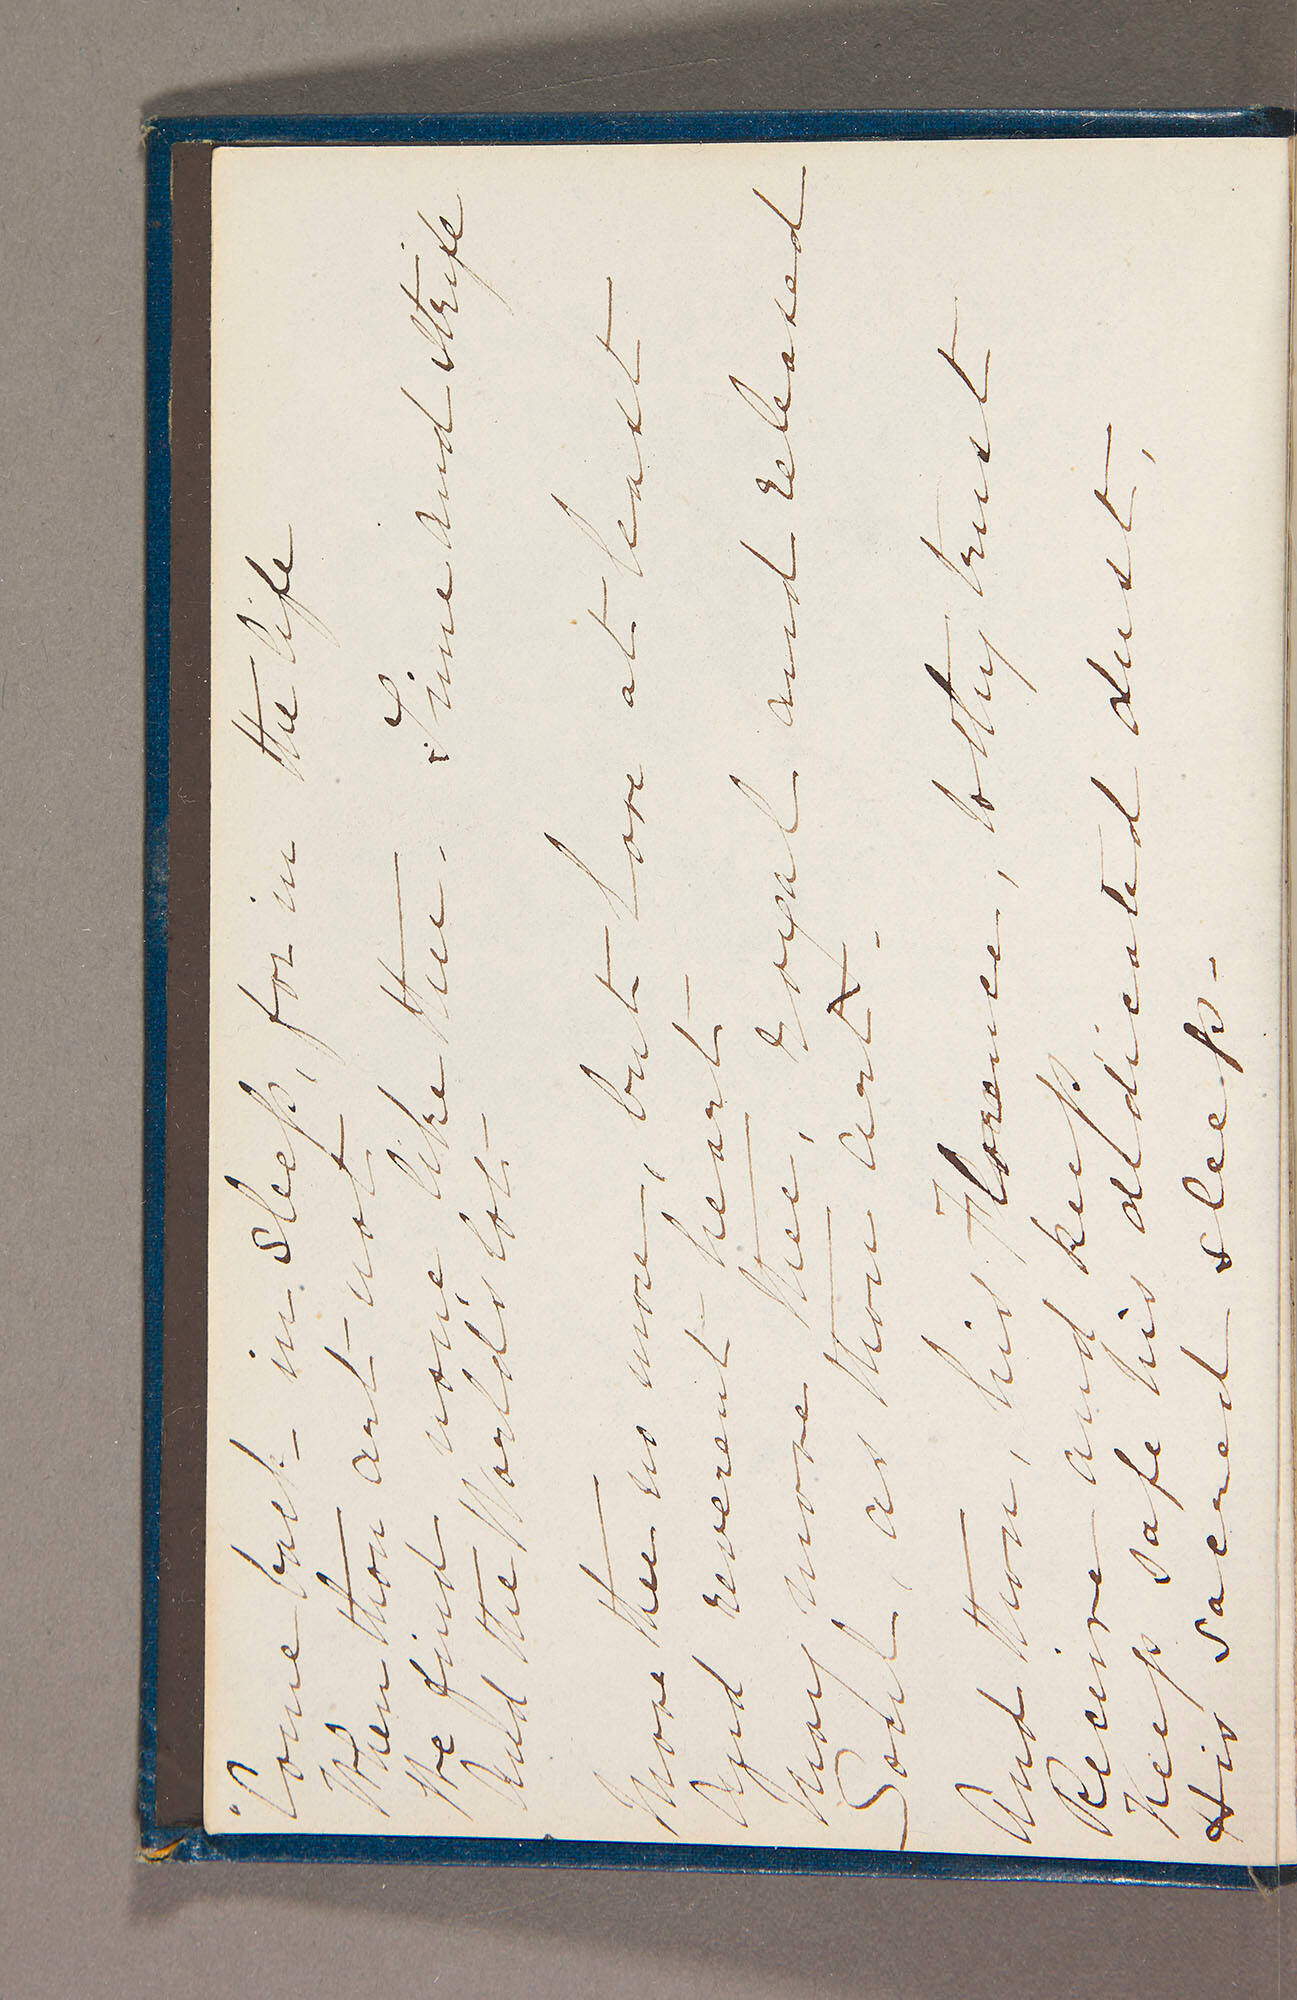 "Come back in sleep, for in the life
When thou art not
We find none like thee. Time and strife
And the World's lot-
Move thee no more, but Love at least
And reverent heart
May move thee, royal and released
Soul, as thou art.
And thou, his Florence, to thy trust
Receive and keep
Keep safe his dedicated dust,
His sacred sleep-